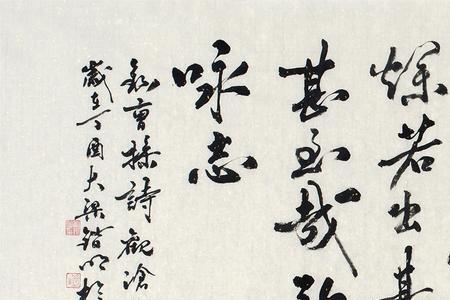 燦若出其
甚至哉
咏志
錄曹操詩觀滄
歲在丁酉大梁